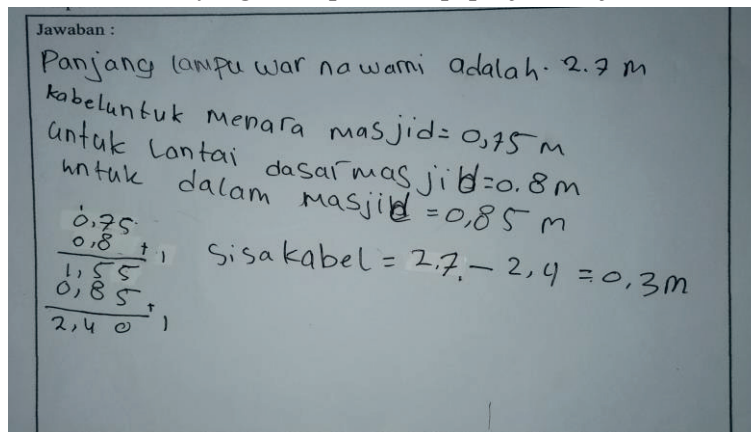 Jawaban :
Panjang lampu war na warni adalah. 2.7 m
kabeluntuk menara masjid = 0,75 m
untuk Lantai dasar masjid = 0.8 m
untuk dalam masjid = 0,85 m
0,75
0,8 +
1,55
0,85 +
2,40
Sisa kabel = 2,7. - 2,4 = 0,3 m